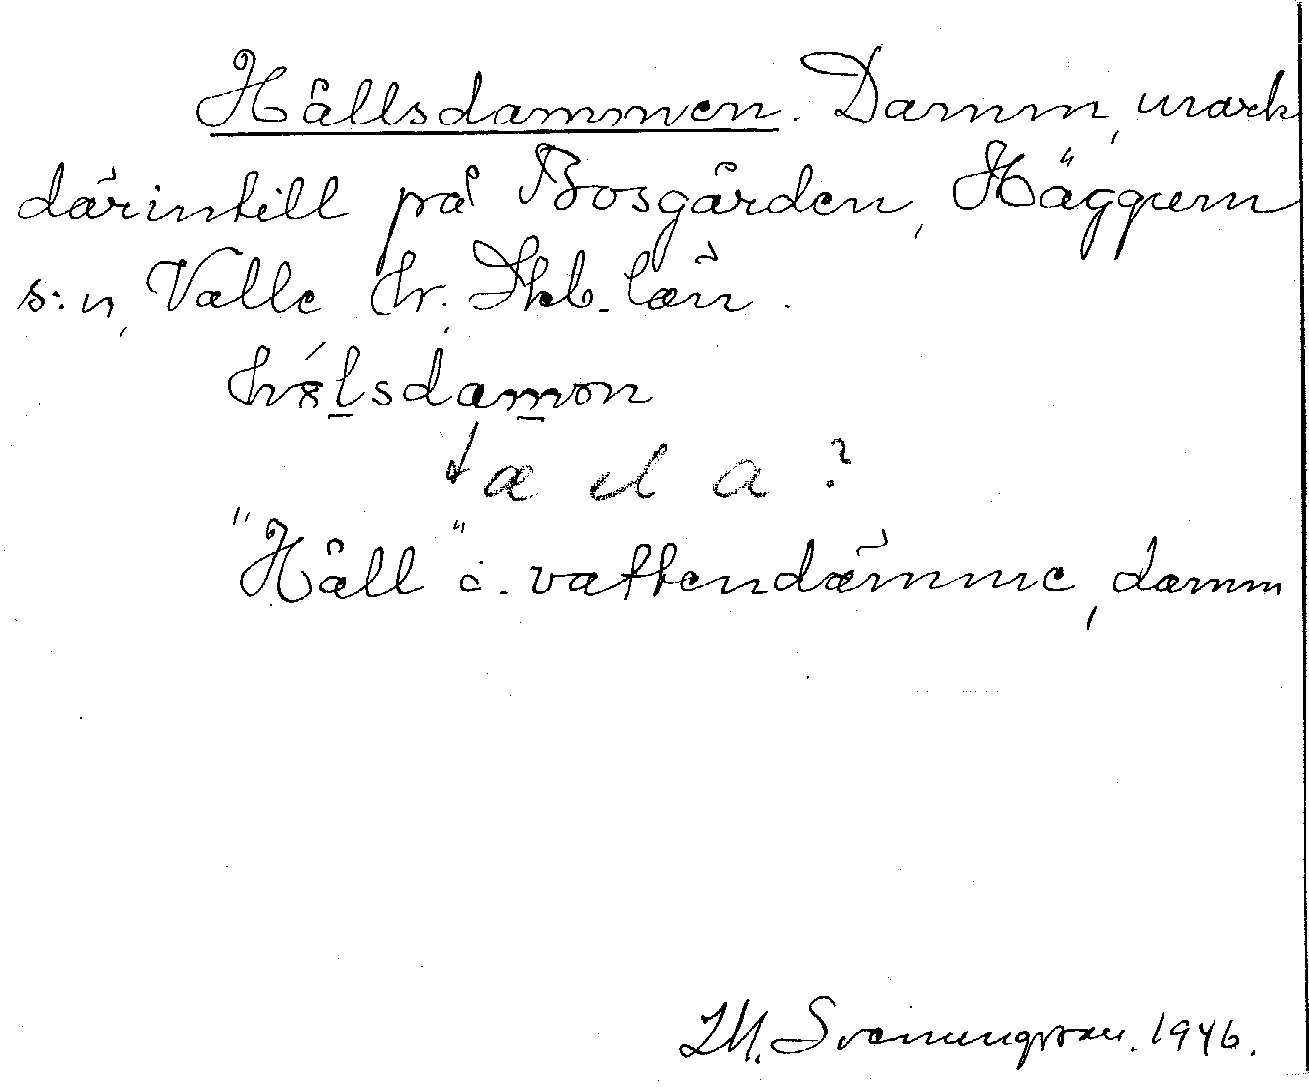 Hållsdammen. Damm, mark
därintill på Bosgården, Häggum
s:n, Valle hr. Skb. län.
æ el a?
"Håll" ö. vattendämme, damm
M. Svenungsson. 1946.